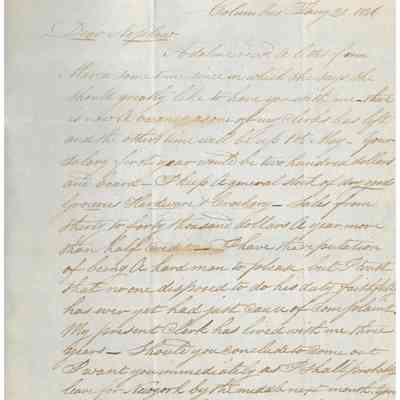 Columbus Feby 21
Dear Nephew
Adaline recd a letter from
Alvira some time since in which she says she
should greatly like to have you with me - there
is now a vacancy as one of my Clerks has left
and the others time will be up 1st May - Your
salary first year would be two hundred dollars
and board - I keep a general stock of dry goods
Groceries Hardware & Crockery - Sales from
thirty to forty thousand dollars a year more
than half - I have the reputation
of being a hard man to please but I trust
that no one disposed to do his duty faithfully
has ever yet had just cause of complaint.
My present Clerk has lived with me three
years - Should you conclude to come out
I want you immediately as I shall probably
leave for New York by the middle next month. You